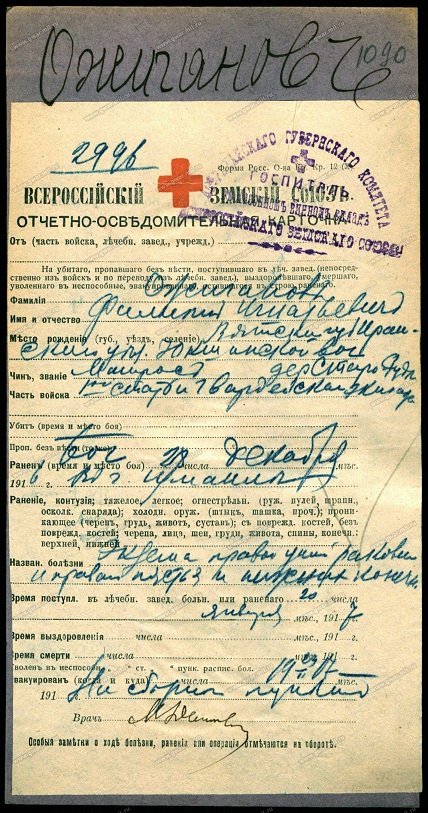 Ожигановъ
1090
2996
Форма Росс. О-ва Кр. Кр. 12
ГУБЕРНСКАГО КОМИТЕТА
ГОСПИТАЛЬ
ВСЕРОССІЙСКАГО ЗЕМСКАГО СОЮЗА
ВСЕРОССІЙСКІЙ ЗЕМСКІЙ СОЮЗЪ
ОТЧЕТНО-ОСВѢДОМИТЕЛЬНАЯ КАРТОЧКА
Отъ (часть войска, лѣчебн. завед., учрежд.)
На убитаго, пропавшаго безъ вѣсти, поступившаго въ лѣч. завед. (непосред-
ственно изъ войскъ и по переводу изъ лѣчебн. завед.), выздоровѣвшаго, умершаго,
уволеннаго въ неспособные, эвакуированнаго
Фамилія Ожигановъ
Имя и отчество Филиппъ Игнатьевичъ
Мѣсто рожденія (губ., уѣзд., селеніе) Вятской губ
Чинъ, званіе Матросъ дер Старо
Часть войска статьи Гвардейскаго Экипаж
Убитъ (время и мѣсто боя)
Проп. безъ вѣсти
Раненъ (время и мѣсто боя) 28 числа Декабря мѣс.
191 6 г.
Раненіе, контузія: тяжелое, легкое; огнестрѣльн. (руж. пулей, шрапн.,
осколк. снаряда); холодн. оруж. (штыкъ, шашка, проч.); прони-
кающее (черепъ, грудь, животъ, суставъ); съ поврежд. костей, безъ
поврежд. костей; черепа, лица, шеи, груди, живота, спины, конечн.:
верхней, нижней
Назван. болѣзни Экзема правой ушн раковин
и правой кисти и нижних конеч
Время поступл. въ лѣчебн. завед. больн. или раненаго 20 числа
Января мѣс., 191 7 г.
Время выздоровленія числа мѣс., 191 г.
Время смерти числа мѣс., 191 г.
Уволенъ въ неспособн. " ст. " пунк. распис. бол.
Эвакуированъ (когда и куда) числа мѣс.
191 На сборный пунктъ
Врачъ
Особыя замѣтки о ходѣ болѣзни, раненія или операціи отмѣчаются на оборотѣ.